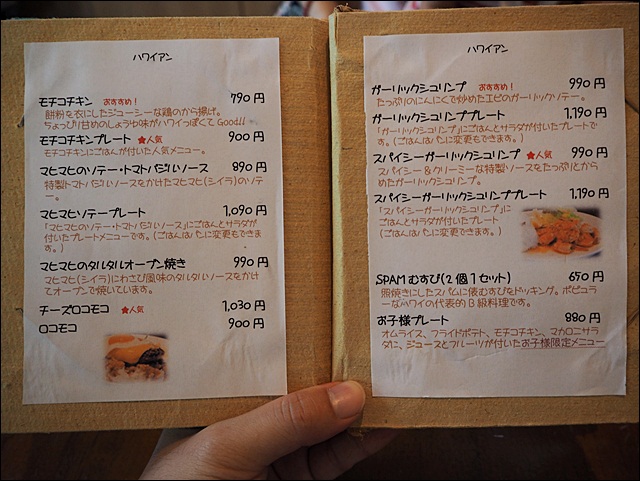 ハワイアン
モチコチキン おすすめ! 790円
餅粉を衣にしたジューシーな鶏のから揚げ。
ちょっぴり甘めのしょうゆ味がハワイっぽくてGood!!
モチコチキンプレート ★人気 900円
モチコチキンにごはんが付いた人気メニュー。
マヒマヒのソテー・トマトバジルソース 890円
特製トマトバジルソースをかけたマヒマヒ(シイラ)のソテ
ー。
マヒマヒソテープレート 1,090円
「マヒマヒのソテー・トマトバジルソース」にごはんとサラダが
付いたプレートメニューです。(ごはんはパンに変更もできま
す。)
マヒマヒのタルタルオーブン焼き 990円
マヒマヒ(シイラ)にわさび風味のタルタルソースをかけ
てオーブンで焼いています。
チーズロコモコ ★人気 1,030円
ロコモコ 900円
ハワイアン
ガーリックシュリンプ おすすめ! 990円
たっぷりのにんにくで炒めたエビのガーリックソテー。
ガーリックシュリンププレート 1,190円
「ガーリックシュリンプ」にごはんとサラダが付いたプレートで
す。(ごはんはパンに変更もできます。)
スパイシーガーリックシュリンプ ★人気 990円
スパイシー&クリーミーな特製ソースをたっぷりとから
めたガーリックシュリンプ。
スパイシーガーリックシュリンププレート 1,190円
「スパイシーガーリックシュリンプ」に
ごはんとサラダが付いたプレートです。
(ごはんはパンに変更もできます。)
SPAMむすび(2個1セット) 650円
照焼きにしたスパムに俵むすびをドッキング。ポピュラ
ーなハワイの代表的B級料理です。
お子様プレート 880円
オムライス、フライドポテト、モチコチキン、マカロニサラ
ダに、ジュースとフルーツが付いたお子様限定メニュー